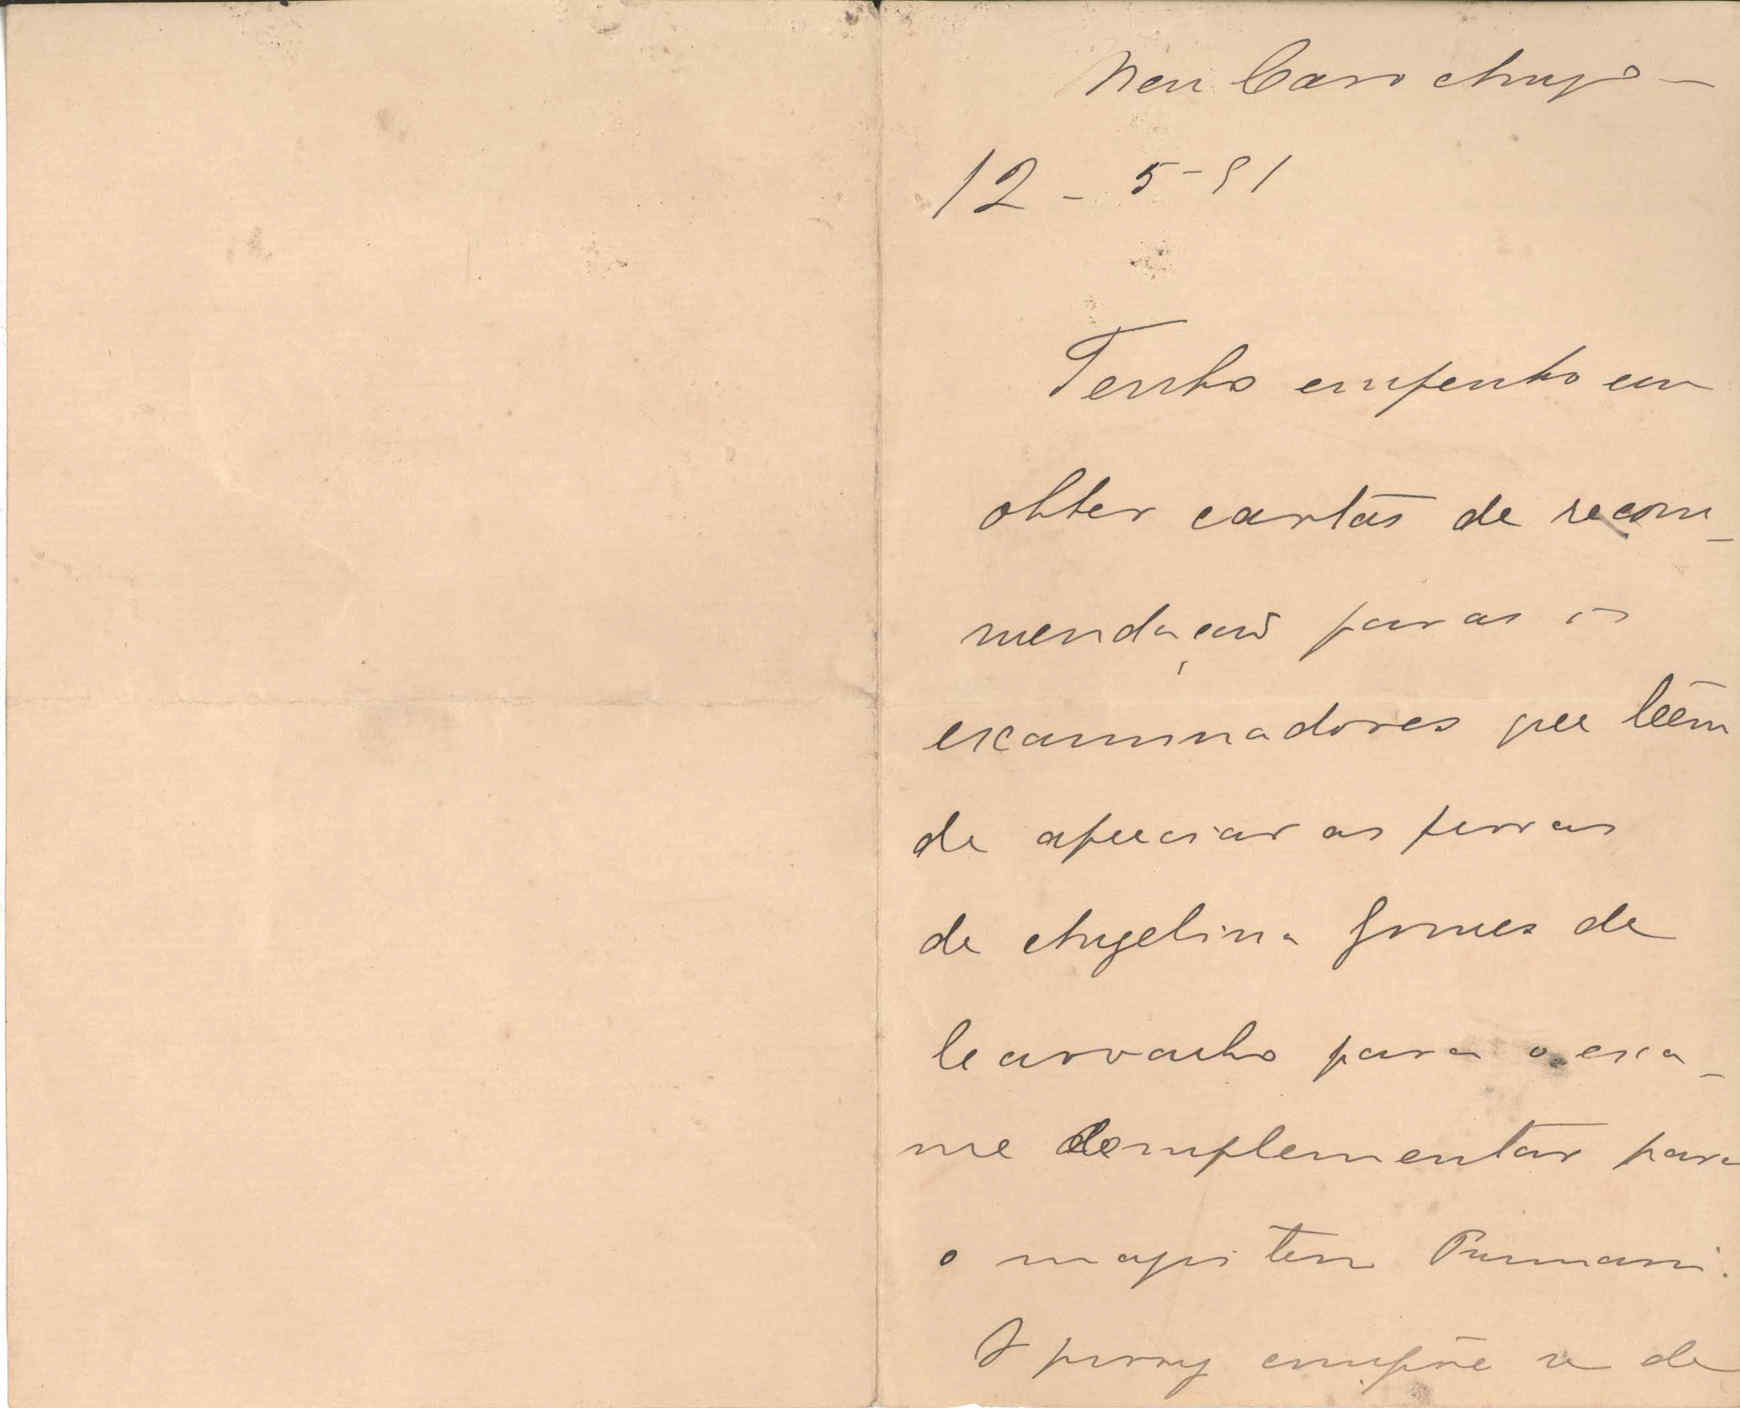 Meu Caro Amigo -
12 - 5 - 91
Tenho empenho em
obter cartas de recom-
mendação para os
examinadores que têem
de apreciar as provas
de Angelina Gomes de
Carvalho para o exa-
me complementar para
o magisterio Primario.
O jury compõe se de